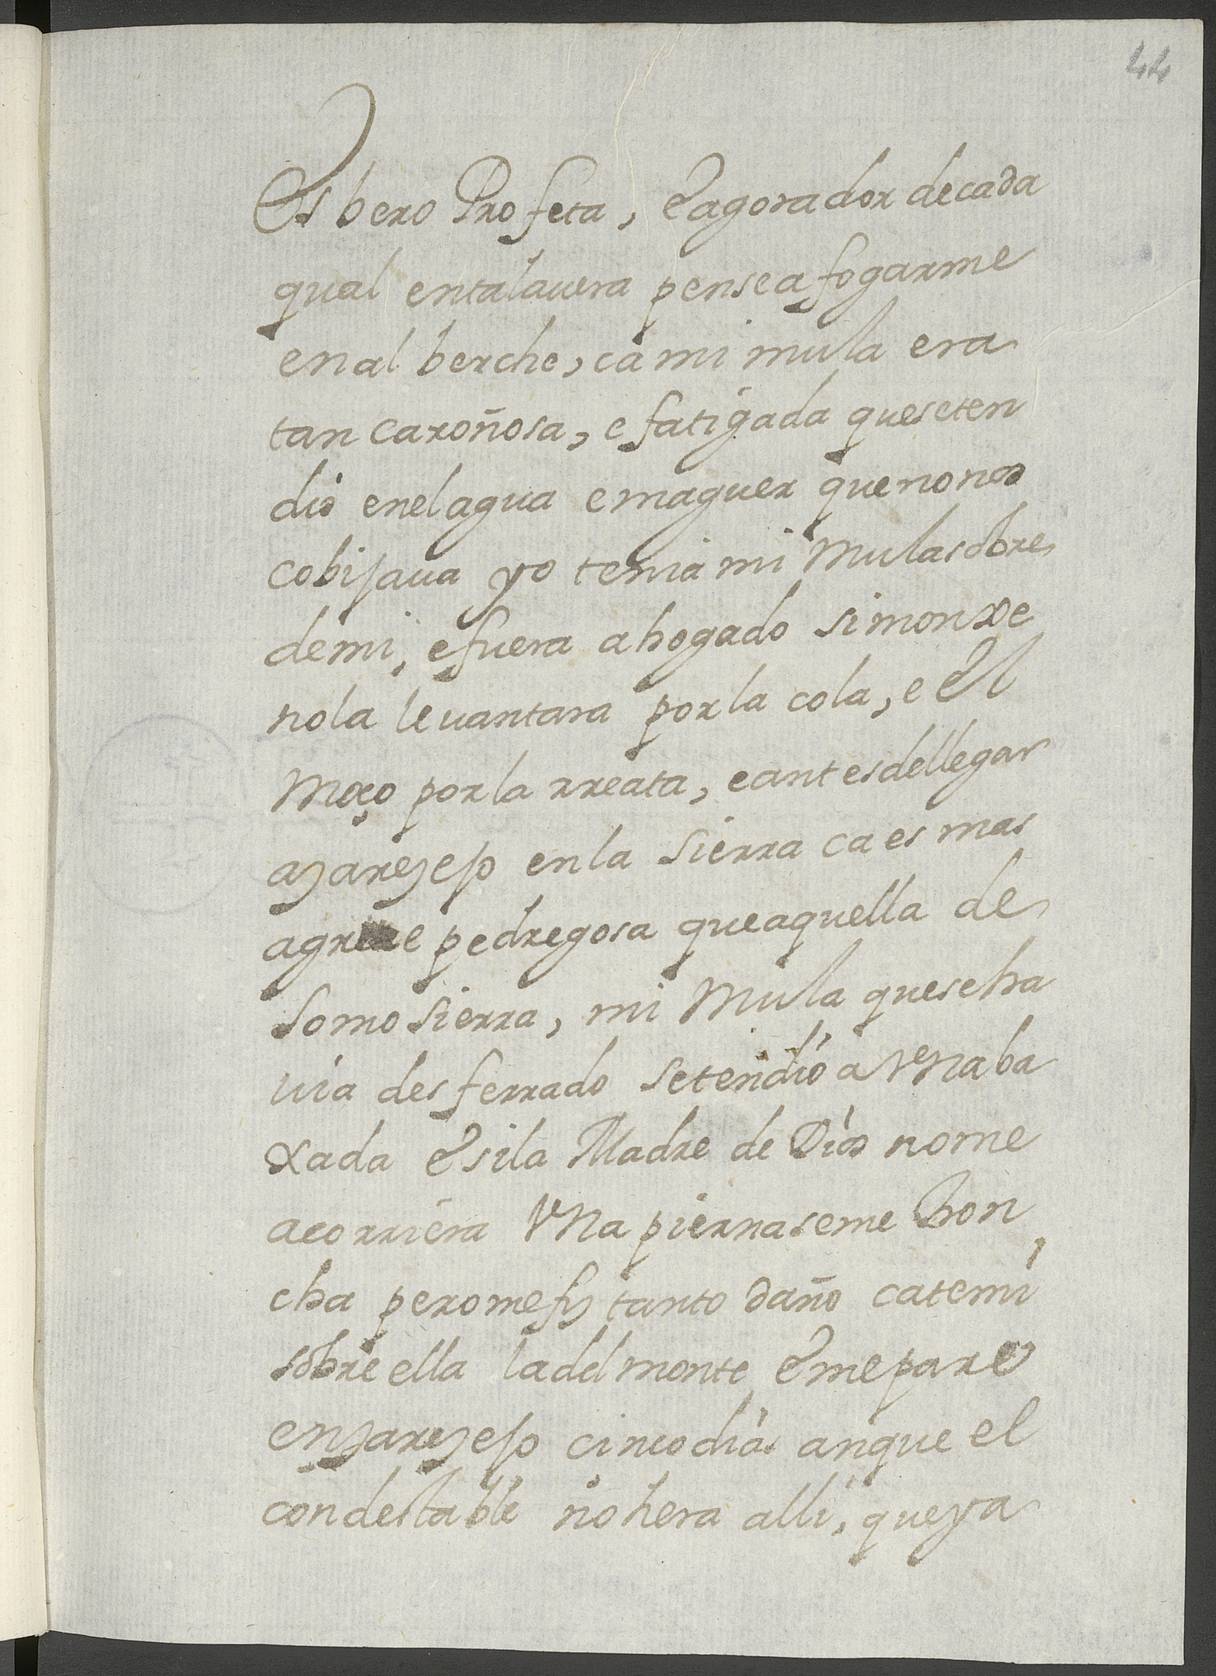 44
Es bero Profeta, e agorador de cada
qual en talauera pense afogarme
en alberche, ca mi mula era
tan caroñosa, e fatigada que se ten
dio en el agua e maguer que no nos
cobijaua yo tenia mi Mula sobre
de mi, e fuera ahogado si monxe
no la leuantara por la cola, e El
Moço por la rreata, e antes de llegar
a en la sierra ca es mas
agre e pedregosa que aquella de
Somosierra, mi Mula que se ha
uia desferrado se tendio a Vna ba
xada e si la Madre de Dios no me
acorriera Vna pierna se me hon
cha pero me fiz tanto daño ca temi
sobre ella la del monte e me pare
en cinco dias anque el
condestable no hera alli, que ya